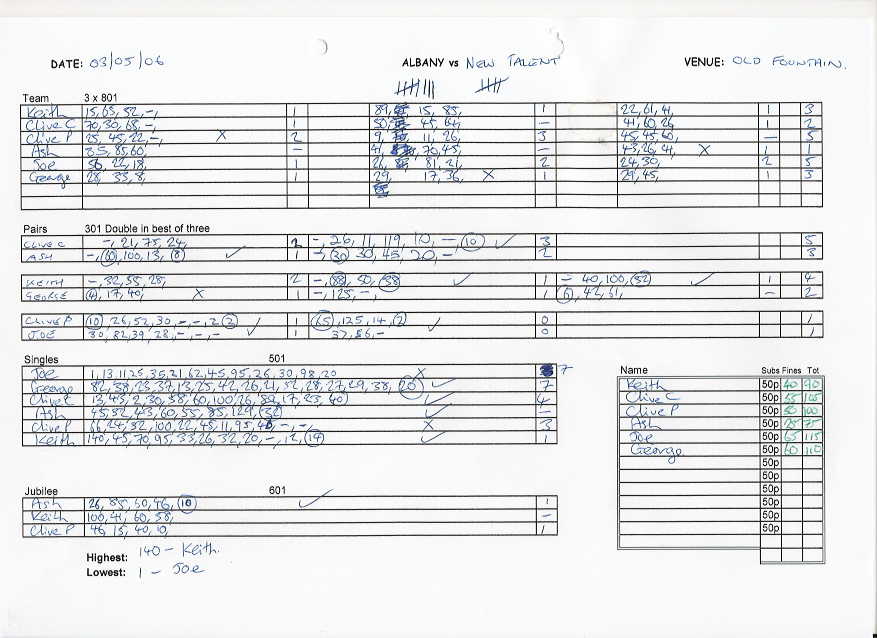 DATE: 03/05/06 ALBANY vs NEW TALENT VENUE: OLD FOUNTAIN.
Team 3 x 801
Keith 15, 63, 52, -, 1 89, 15, 85, 1 22, 61, 41, 1 3
Clive C 70, 30, 68, -, 1 50, 45, 64, - 41, 60, 26, 1 2
Clive P 25, 45, 22, -, X 2 9, 11, 26, 3 45, 45, 60, - 5
Ash 85, 60, - 41, 70, 45, - 43, 26, 41, X 1 1
Joe 56, 22, 18, 1 26, 81, 21, 2 24, 30, 2 5
George 28, 33, 8, 1 29, 17, 36, X 1 29, 45, 1 3
Pairs 301 Double in best of three
CLIVE C -, 21, 75, 24, 2 -, 26, 11, 119, 10, -, (10) ✓ 3 5
ASH 100, 13, (8) ✓ 1 -, (30) 30, 45, 20, - 2 3
KEITH -, 32, 55, 28, 2 50, (38) ✓ 1 - 40, 100, (52) ✓ 1 4
GEORGE 17, 40, X 1 -, 125, -, 1 42, 61, - 2
CLIVE P (10) 26, 52, 30, -, -, 2 (2) 1 (65), 125, 14, (2) ✓ 0 1
JOE 30, 82, 39, 28, -, -, - ✓ 1 37, 86, - 0 1
Singles 501
Joe 1, 13, 11, 25, 35, 21, 62, 45, 95, 26, 30, 98, 20 X 7
George 82, 38, 23, 37, 13, 25, 42, 26, 21, 52, 28, 27, 29, 38, (20) ✓ 7
Clive C 13, 43, 2, 30, 58, 60, 100, 26, 89, 17, 23, 40) ✓ 4
Ash 45, 52, 43, 60, 55, 85, 129, (32) ✓ -
Clive P 66, 24, 52, 100, 22, 45, 11, 95, -, -, X 3
Keith 140, 45, 70, 95, 33, 26, 32, 20, -, 12, (14) ✓ 1
Name Subs Fines Tot
Keith 50p 40 90
Clive C 50p 55 105
Clive P 50p 50 100
Ash 50p 25 75
Joe 50p 65 115
George 50p 60 110
50p
50p
50p
50p
50p
50p
Jubilee 601
Ash 26, 85, 50, 46, (10) ✓ 1
Keith 100, 41, 60, 58, -
Clive P 46, 15, 40, 10, 1
Highest: 140 - Keith.
Lowest: 1 - Joe